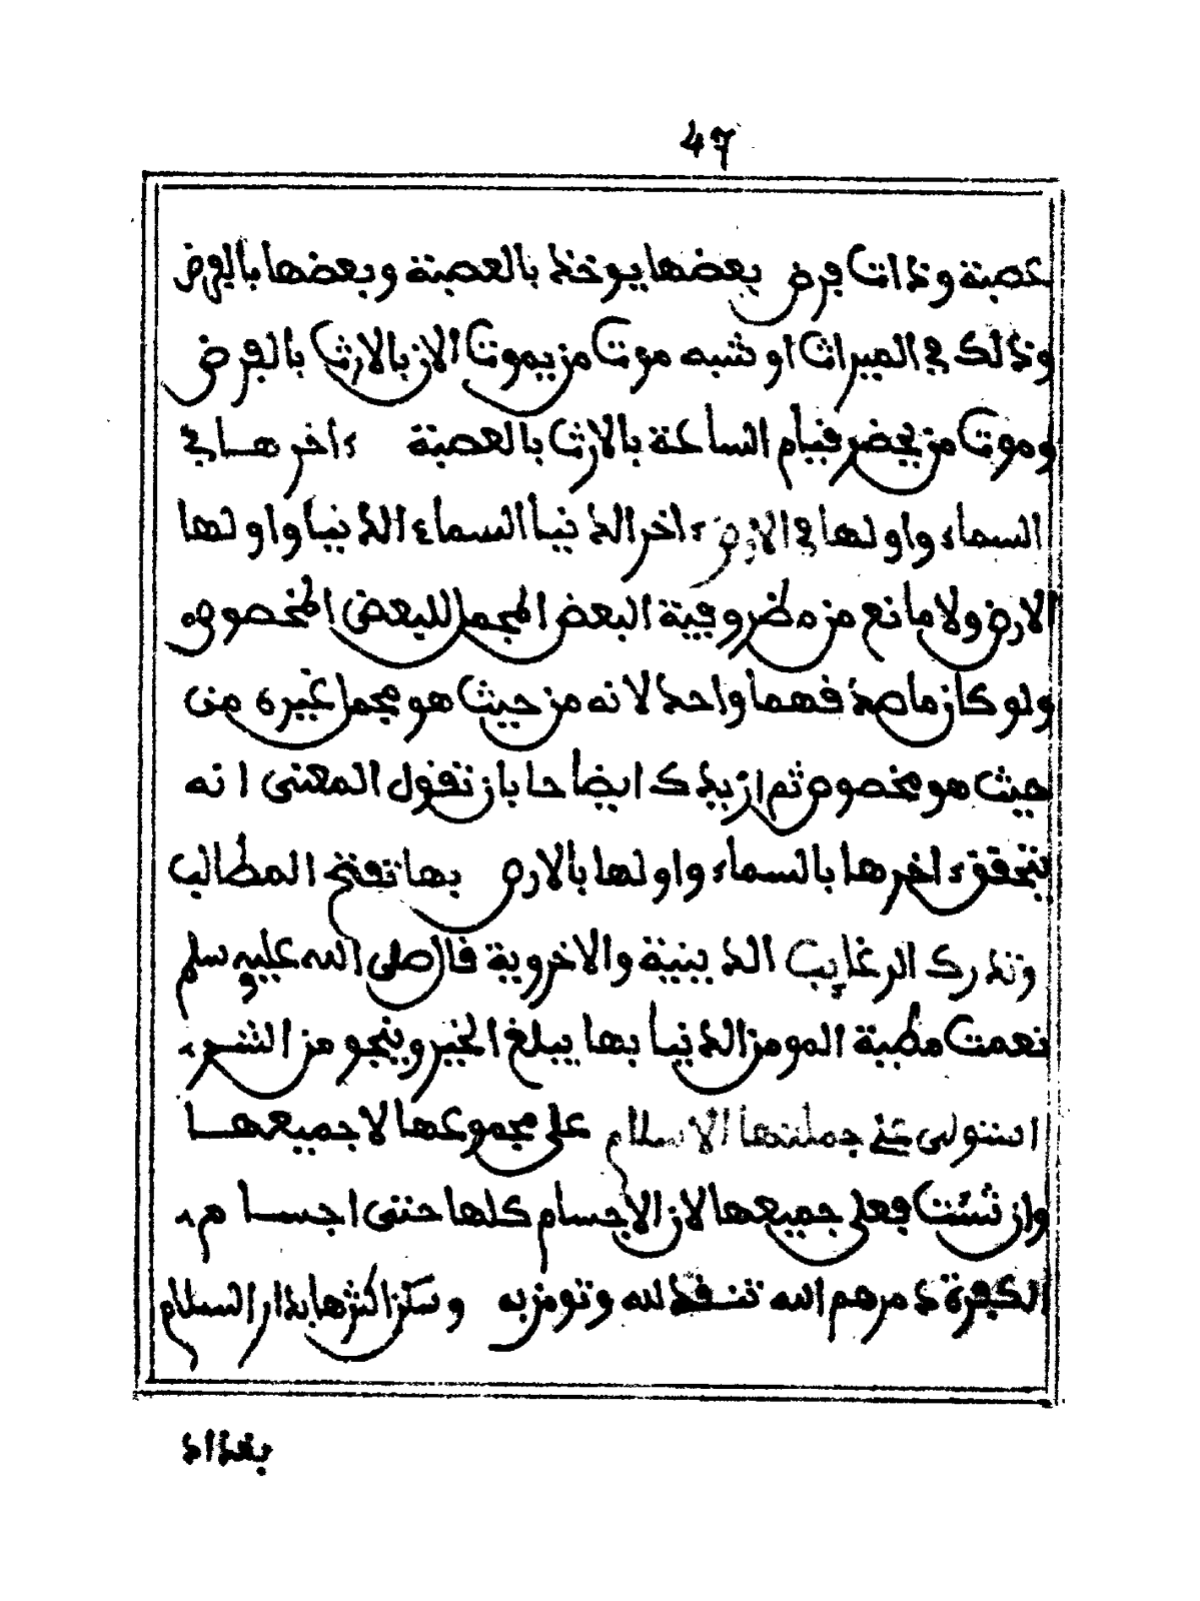 47
عصبة وذات فرض بعضها يوخذ بالعصبة وبعضها بالفرض
وذلك في الميراث او شبه موت من يموت الان بالارث بالفرض
وموت من يحضر قيام الساعة بالارث بالعصبة ءاخرها في
السماء واولها في الارض ءاخر الدنيا السماء الدنيا واولها
الارض ولا مانع من مظروفية البعض المجمل للبعض المخصوص
ولو كان ماصدقهما واحد لانه من حيث هو مجمل غيره من
حيث هو مخصوص ثم ازيدك ايضاحا بان تقول المعنى انه
يتحقق ءاخرها بالسماء واولها بالارض بها تفتح المطالب
وتدرك الرغايب الدينية والاخروية قال صلى الله عليه وسلم
نعمت مطية المومن الدنيا بها يبلغ الخير وينجو من الشر
استولى على جملتها الاسلام على مجموعها لا جميعها
وان شئت فعلى جميعها لان الاجسام كلها حتى اجسام
الكفرة دمرهم الله تنقد لله وتومن به وسكن اكثرها بدار السلام
بغداد